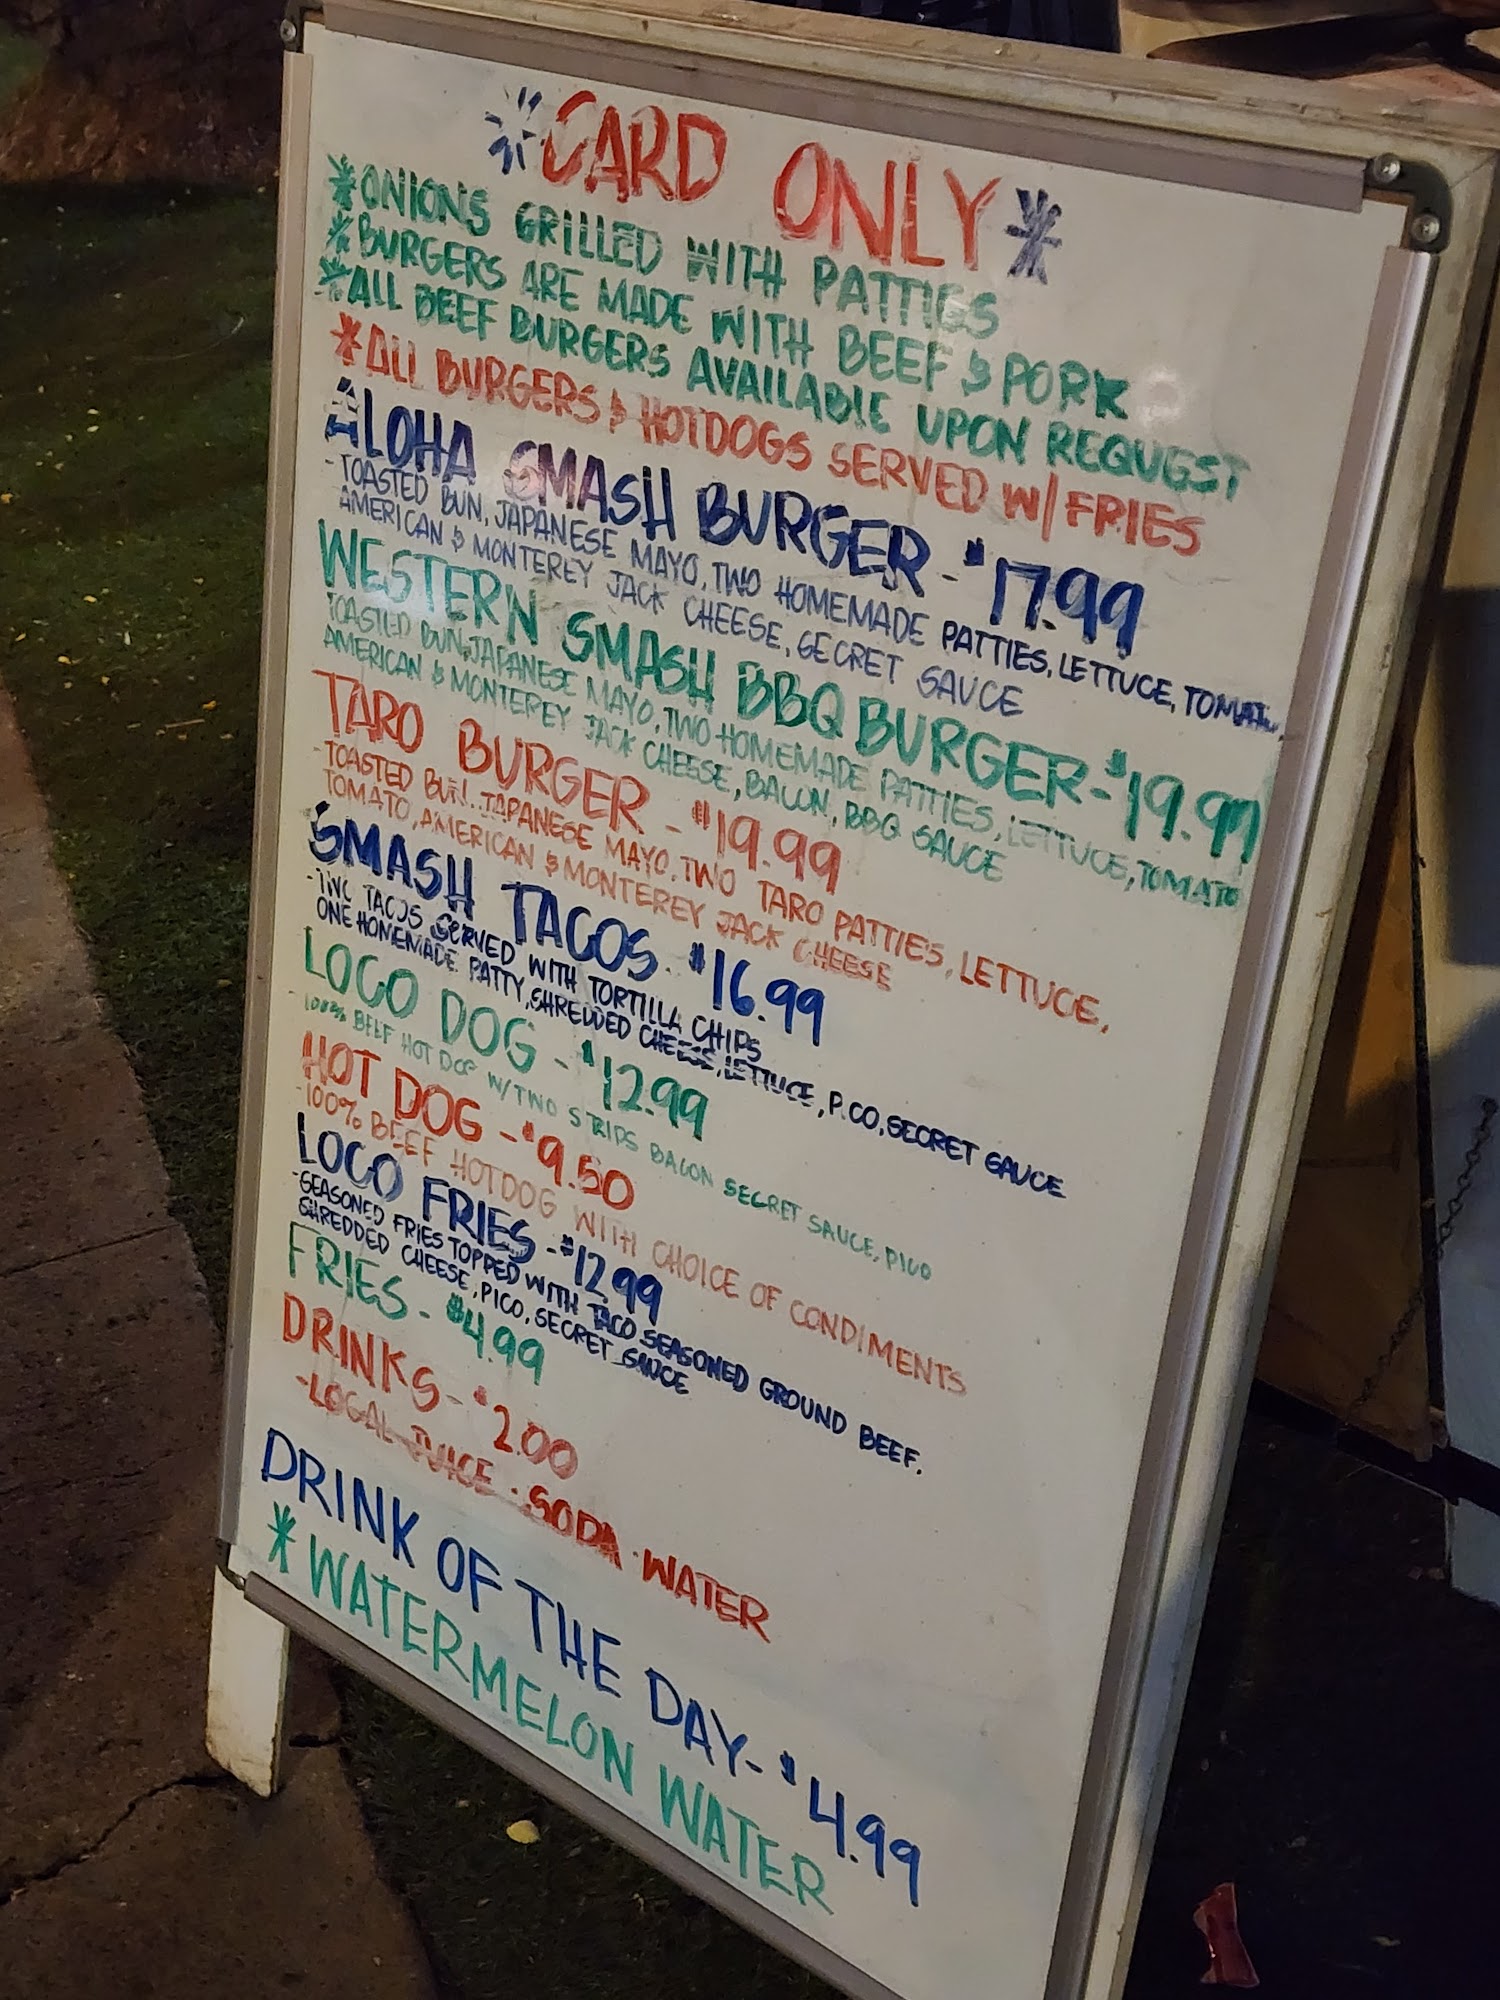 *CARD ONLY*
*ONIONS GRILLED WITH PATTIES
*BURGERS ARE MADE WITH BEEF & PORK
*ALL BEEF BURGERS AVAILABLE UPON REQUEST
*ALL BURGERS & HOTDOGS SERVED W/FRIES
ALOHA SMASH BURGER - $17.99
- TOASTED BUN, JAPANESE MAYO, TWO HOMEMADE PATTIES, LETTUCE,
AMERICAN & MONTEREY JACK CHEESE, SECRET SAUCE
WESTERN SMASH BBQ BURGER - $19.99
TOASTED BUN, JAPANESE MAYO, TWO HOMEMADE PATTIES, LETTUCE, TOMATO
AMERICAN & MONTEREY JACK CHEESE, BACON, BBQ SAUCE
TARO BURGER - $19.99
- TOASTED BUN, JAPANESE MAYO, TWO TARO PATTIES, LETTUCE,
TOMATO, AMERICAN & MONTEREY JACK CHEESE
SMASH TACOS - $16.99
- TWO TACOS SERVED WITH TORTILLA CHIPS
ONE HOMEMADE PATTY, SHREDDED CHEESE, LETTUCE, PICO, SECRET SAUCE
LOCO DOG - $12.99
- 100% BEEF HOT DOG W/TWO STRIPS BACON SECRET SAUCE, PICO
HOT DOG - $9.50
- 100% BEEF HOTDOG WITH CHOICE OF CONDIMENTS
LOCO FRIES - $12.99
- SEASONED FRIES TOPPED WITH TACO SEASONED GROUND BEEF,
SHREDDED CHEESE, PICO, SECRET SAUCE
FRIES - $4.99
DRINKS - $2.00
- LOCAL JUICE · SODA · WATER
DRINK OF THE DAY - $4.99
*WATERMELON WATER